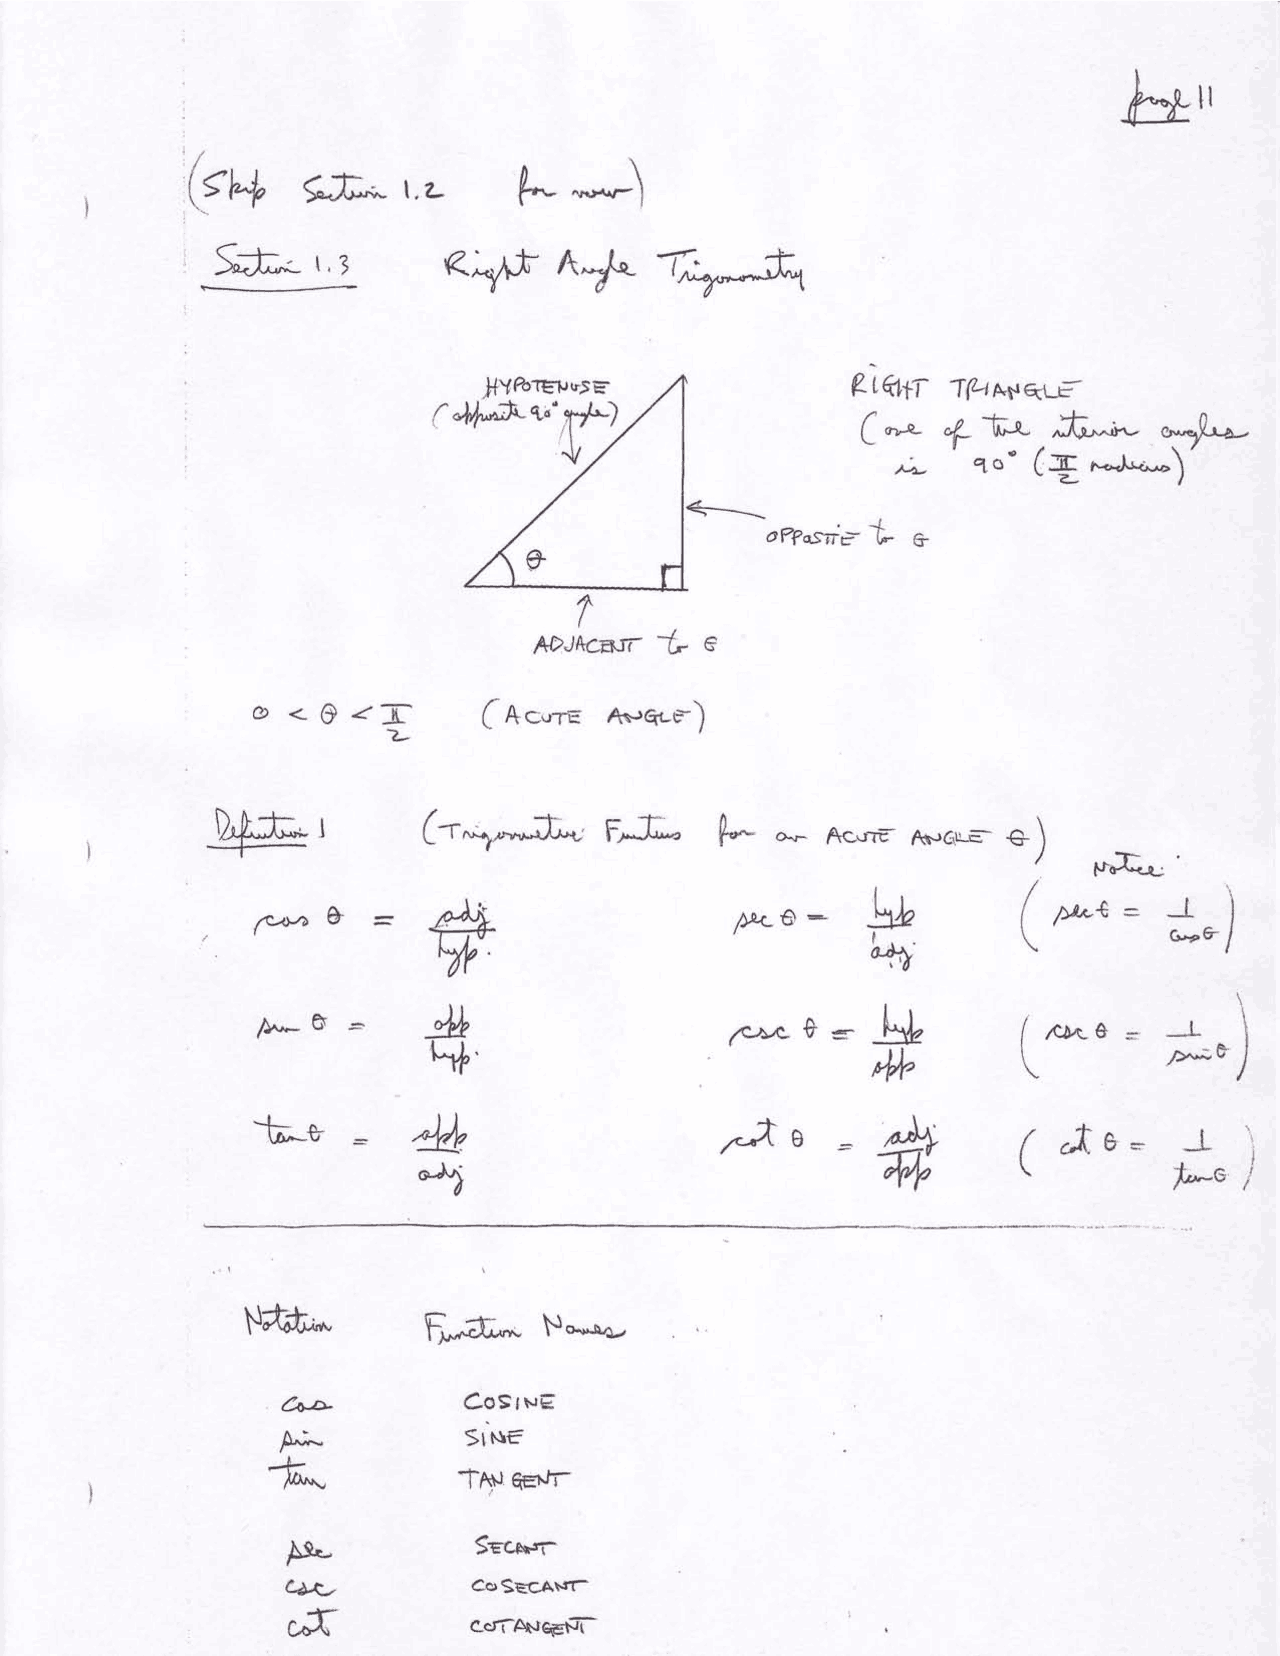 page 11
(Skip Section 1.2 for now)
Section 1.3 Right Angle Trigonometry
HYPOTENUSE
(opposite 90° angle)
RIGHT TRIANGLE
(one of the interior angles
is 90° (π/2 radians)
θ
OPPOSITE to θ
ADJACENT to θ
0 < θ < π/2 (ACUTE ANGLE)
Definition 1 (Trigonometric Functions for an ACUTE ANGLE θ)
Notice:
cos θ = adj/hyp. sec θ = hyp/adj (sec θ = 1/cos θ)
sin θ = opp/hyp. csc θ = hyp/opp (csc θ = 1/sin θ)
tan θ = opp/adj cot θ = adj/opp (cot θ = 1/tan θ)
Notation Function Names
cos COSINE
sin SINE
tan TANGENT
sec SECANT
csc COSECANT
cot COTANGENT